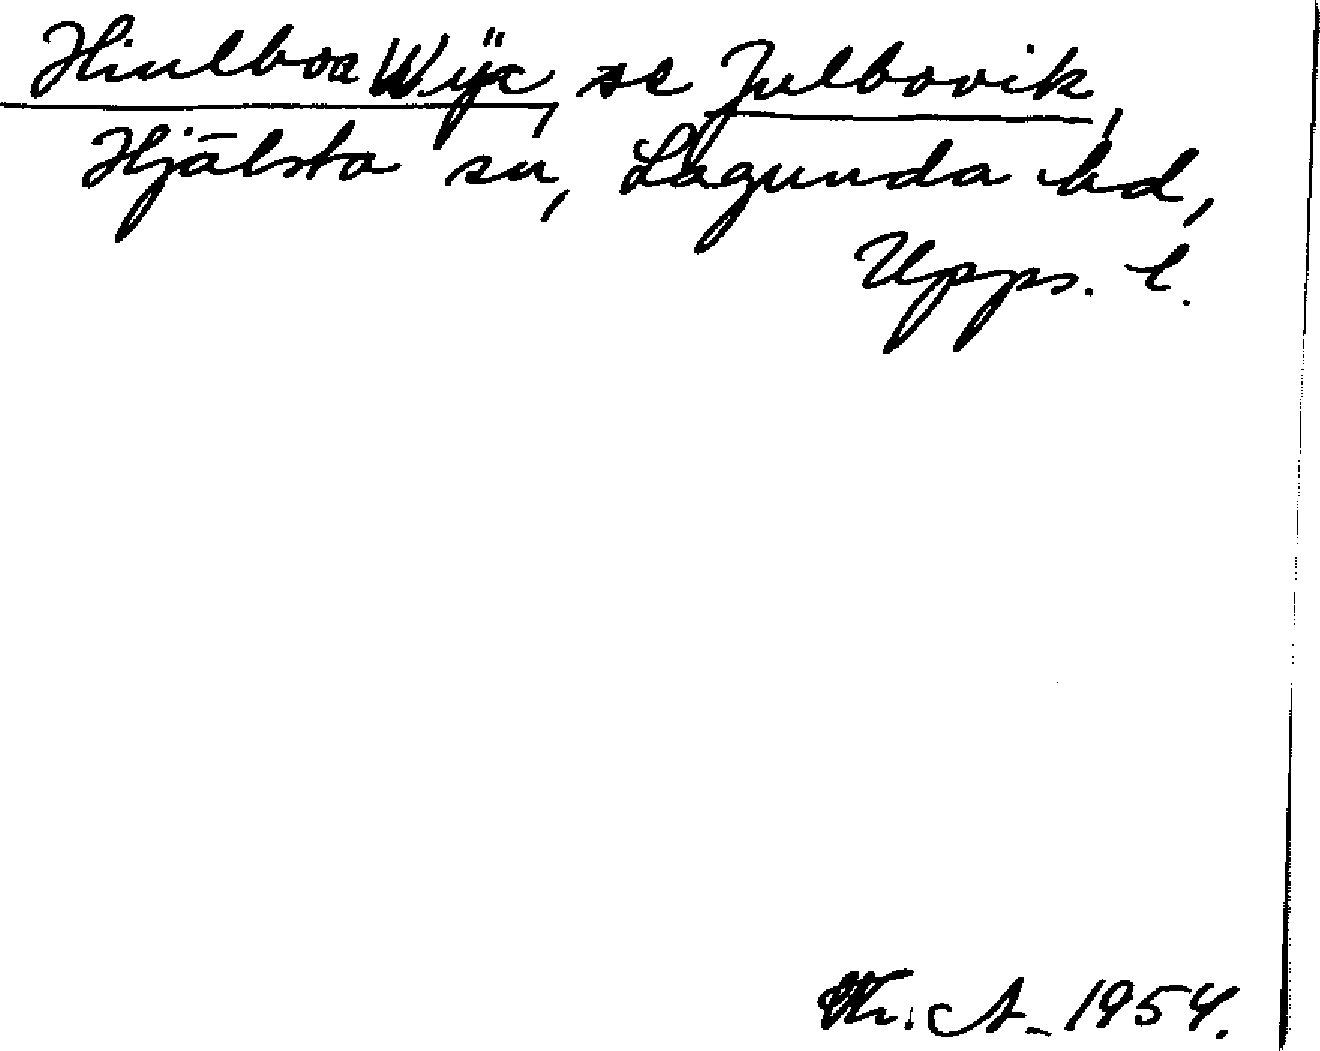 Hiulboa Wÿc, se Julbovik,
Hjälsta sn, Lagunda hd,
Upps. l.
A. 1954.